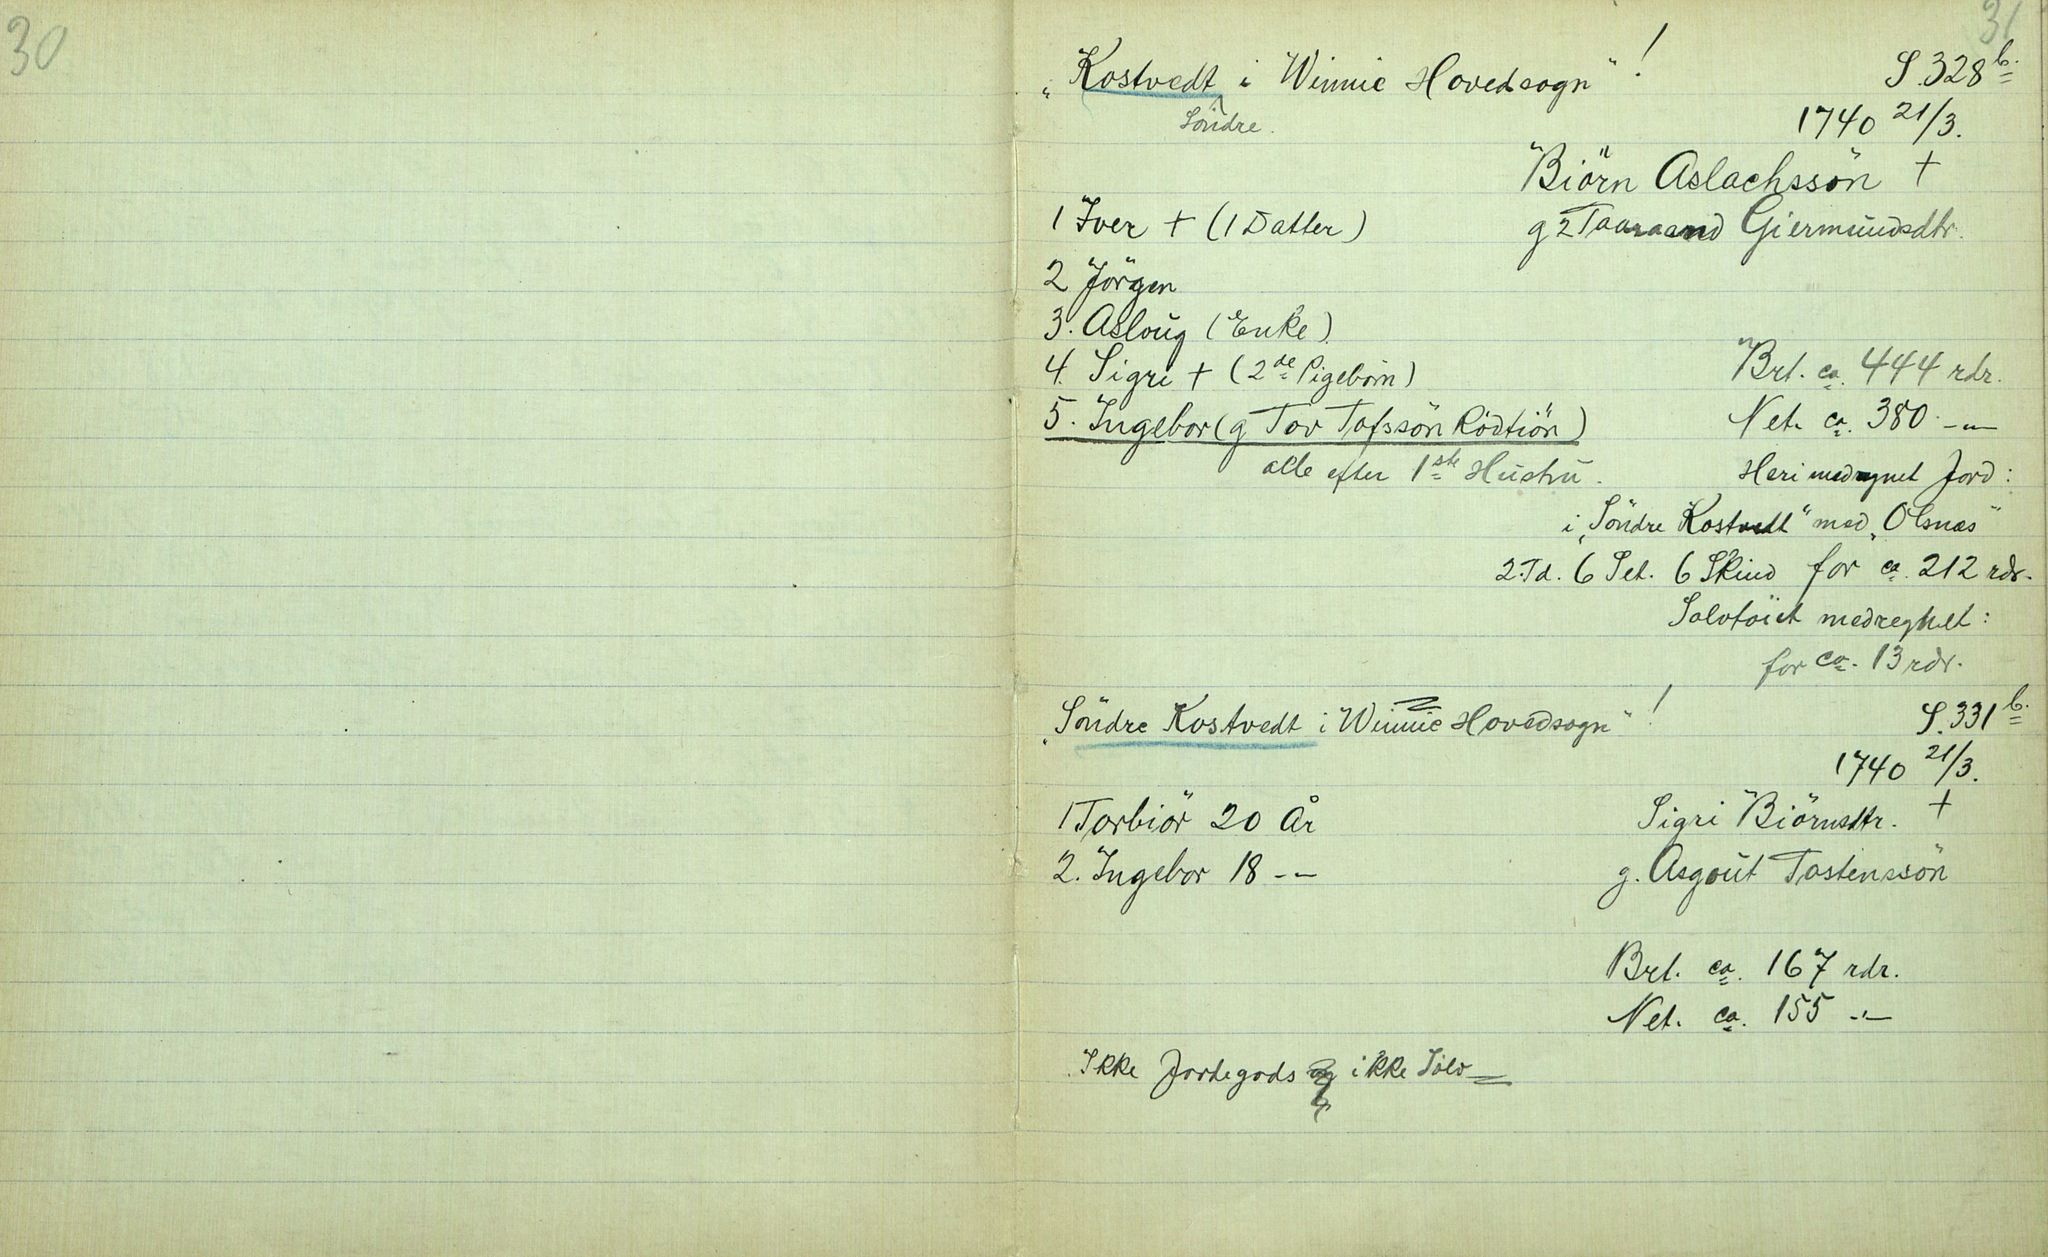 30
31
"Kostvedt i Winnie Hovedsogn"! S. 328 b.
Söndre.
1740 21/3.
Biörn Aslachssön +
1 Iver + (1 Datter) g 2 Taaraand Giermundsdtr.
2 Jörgen
3. Asloug (Enke)
4. Sigri + (2de Pigebörn) Brt. ca. 444 rdr.
5. Ingebor (g Tov Tofssön Rödtiön) Net. ca. 380 -"-
alle efter 1ste Hustru. Heri medregnet Jord:
i "Söndre Kostvedt" med "Olsnæs"
2 Td. 6 Set. 6 Skind for ca. 212 rdr.
Solvtöiet medregnet:
for ca. 13 rdr.
"Söndre Kostvedt i Winnie Hovedsogn"! S. 331 b.
1740 21/3.
1 Torbiör 20 År Sigri Biörnsdtr. +
2. Ingebor 18 -"- g. Asgout Tostenssön
Brt. ca. 167 rdr.
Net. ca. 155 -"-
Ikke Jordegods og ikke Sölv